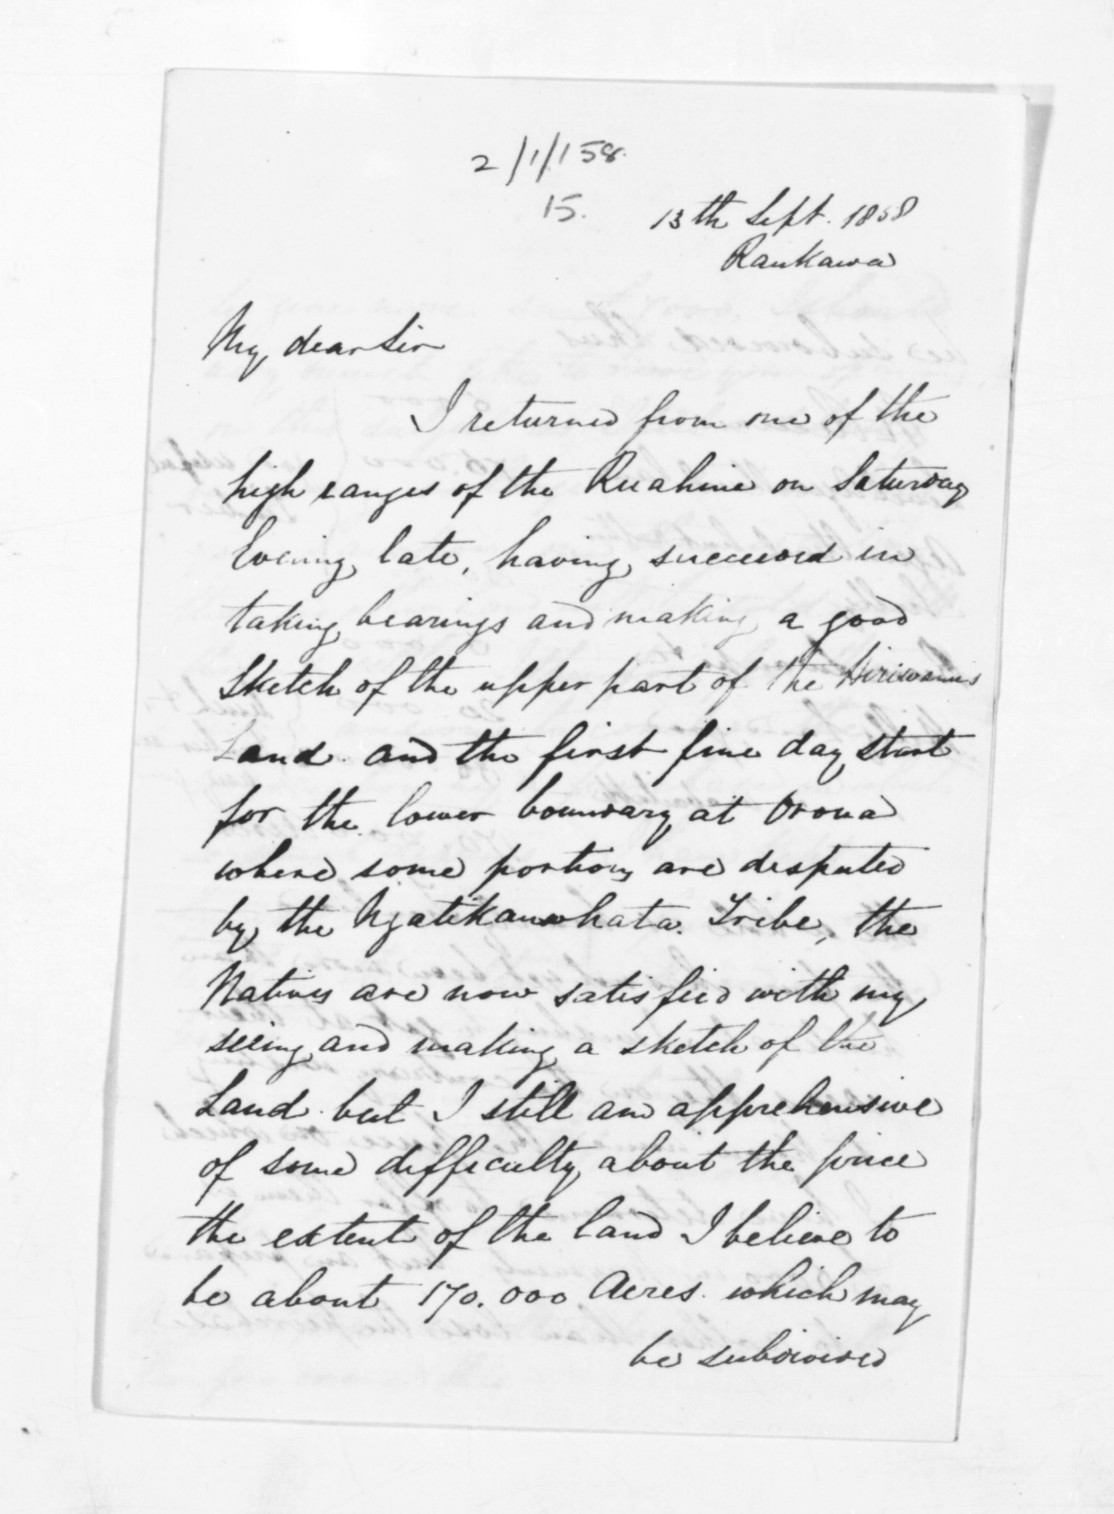 2/1/158.
15.
13th Sept. 1858
Raukawa
My dear Sir
I returned from one of the
high ranges of the Ruahine on Saturday
Evening late, having succeeded in
taking bearings and making a good
Sketch of the upper part of the Hiriwanus
Land and the first fine day start
for the lower boundary at Oroua
where some portions are disputed
by the Ngatikauwhata Tribe, the
Natives are now satisfied with my
seeing and making a sketch of the
Land but I still am apprehensive
of some difficulty about the price
the extent of the land I believe to
be about 170.000 Acres. which may
be subdivided